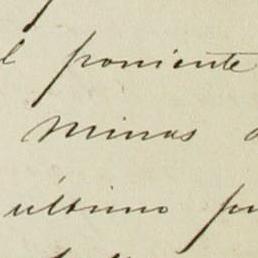 l poniente
Minas
último